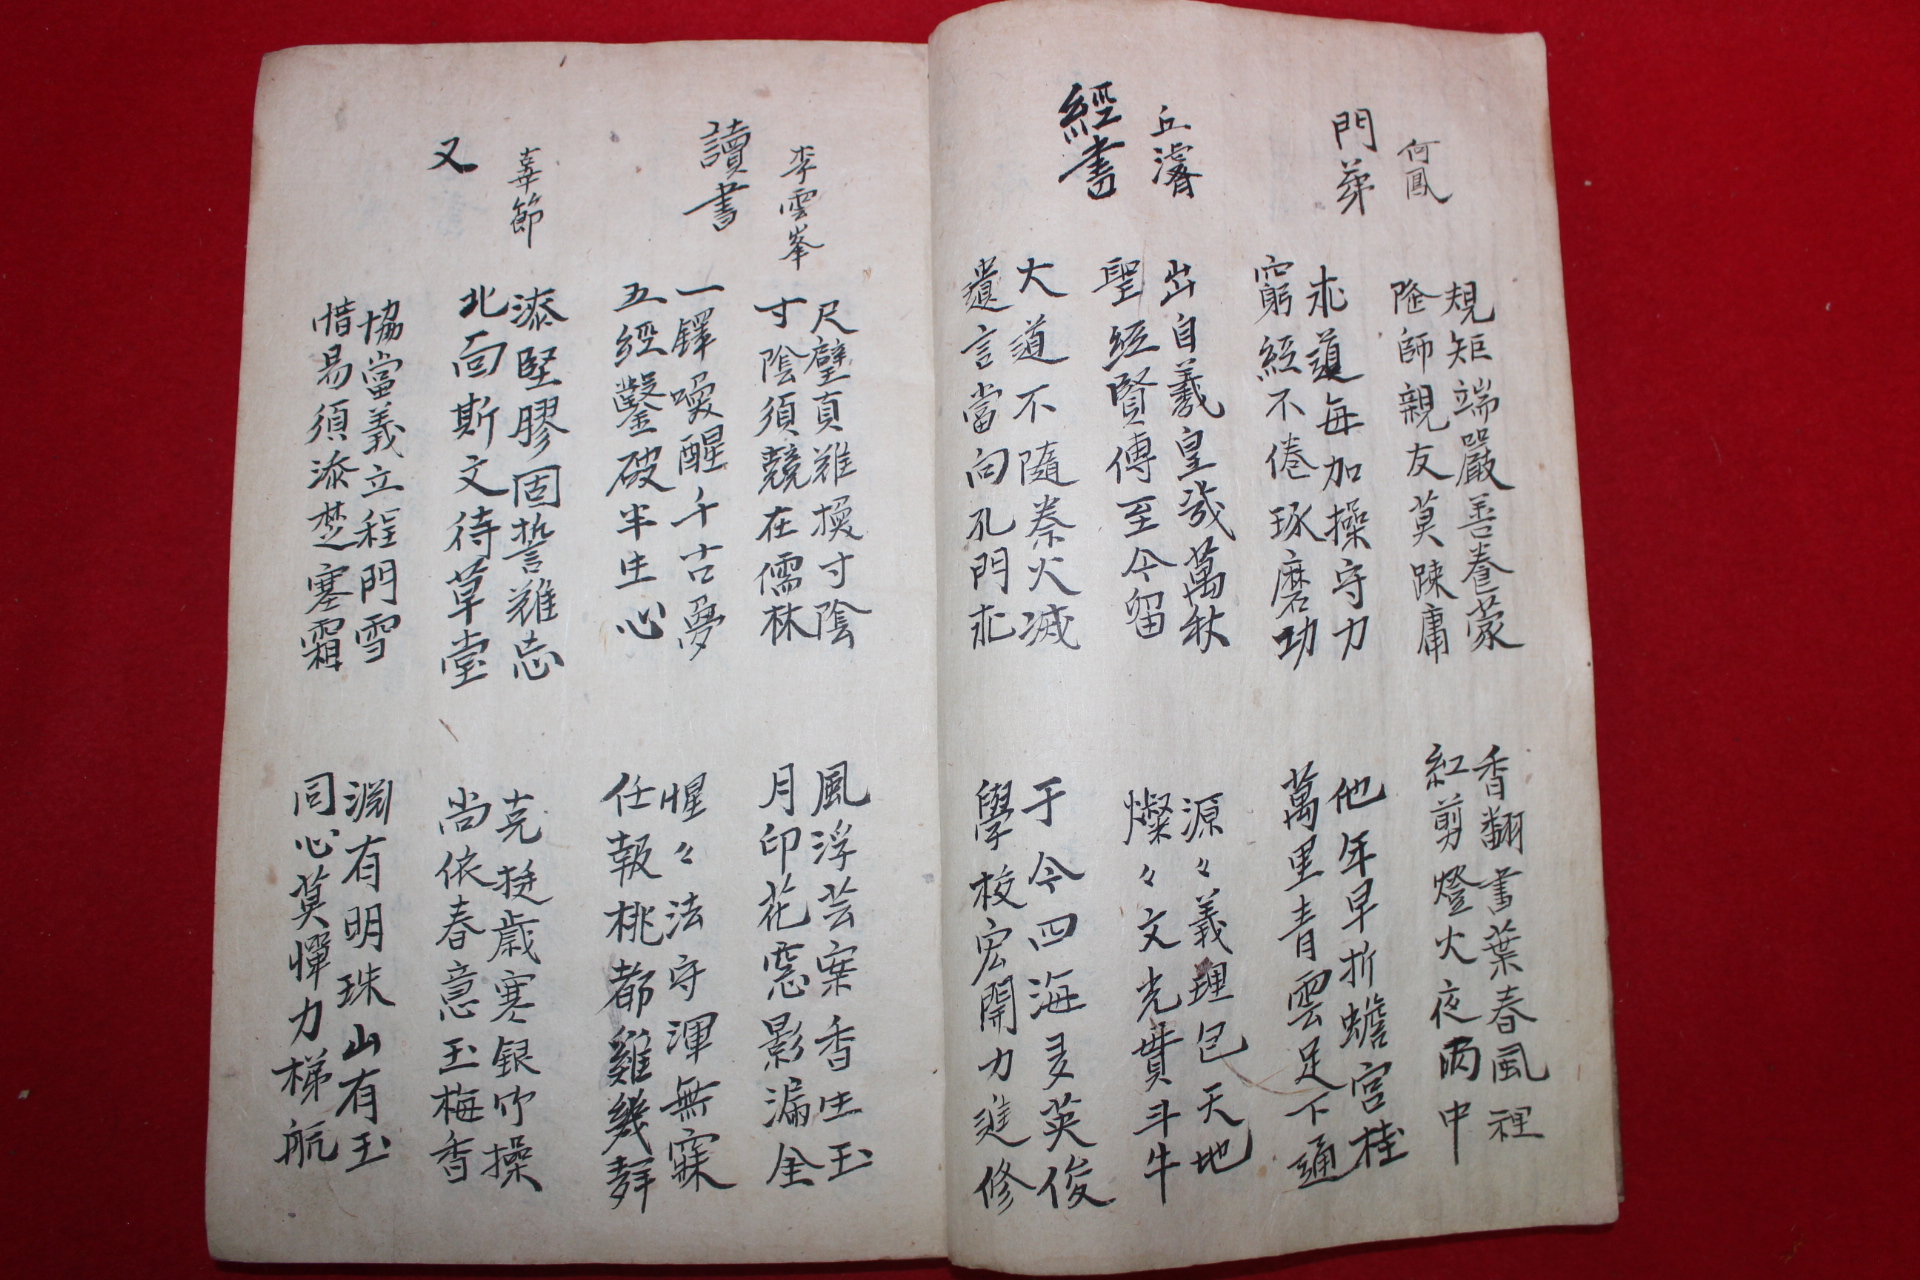 何鳳
門弟
規矩端嚴善養蒙
隆師親友莫踈庸
香翻書葉春風裡
紅剪燈火夜雨中
求道每加操守力
窮經不倦琢磨功
他年早折蟾宮桂
萬里青雲足下通
丘濬
經書
出自羲皇幾萬秋
聖經賢傳至今留
源々義理包天地
燦々文光貫斗牛
大道不隨秦火滅
遺言當向孔門求
于今四海多英俊
學校宏開力進修
李雲峯
讀書
尺璧真難換寸陰
寸陰須競在儒林
風浮芸案香生玉
月印花窓影漏金
一鐸喚醒千古夢
五經鑿破半生心
惺々法守渾無寐
任報桃都雞幾
節
又
漆堅膠固誓難忘
北面斯文待草堂
克挺歲寒銀竹操
尚依春意玉梅香
協當義立程門雪
惜易須添楚塞霜
淵有明珠山有玉
同心莫憚力梯航